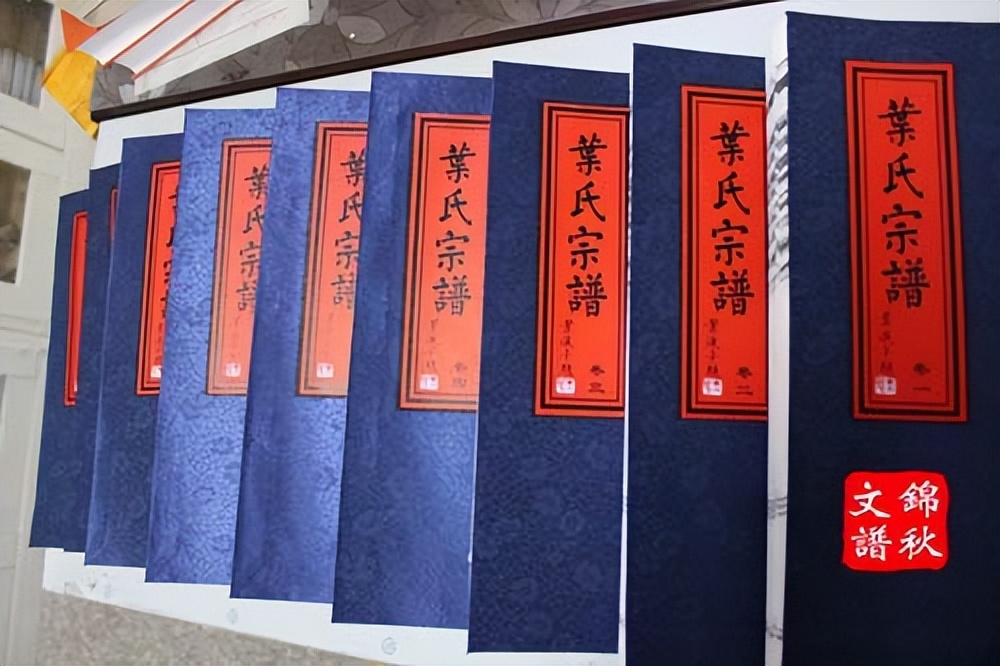 葉氏宗譜
卷一
錦秋
文譜
葉氏宗譜
卷二
葉氏宗譜
卷三
葉氏宗譜
卷四
葉氏宗譜
葉氏宗譜